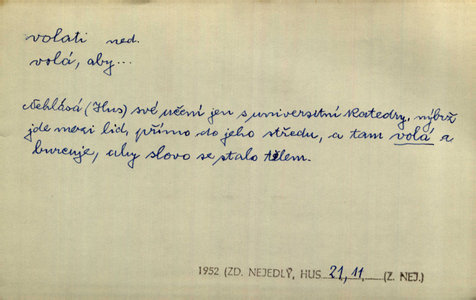 volati ned.
volá, aby...
Nehlásá (Hus) své učení jen s universitní katedry, nýbrž
jde mezi lid, přímo do jeho středu, a tam volá a
burcuje, aby slovo se stalo tělem.
1952 (ZD. NEJEDLÝ, HUS 21, 11. (Z. NEJ.)